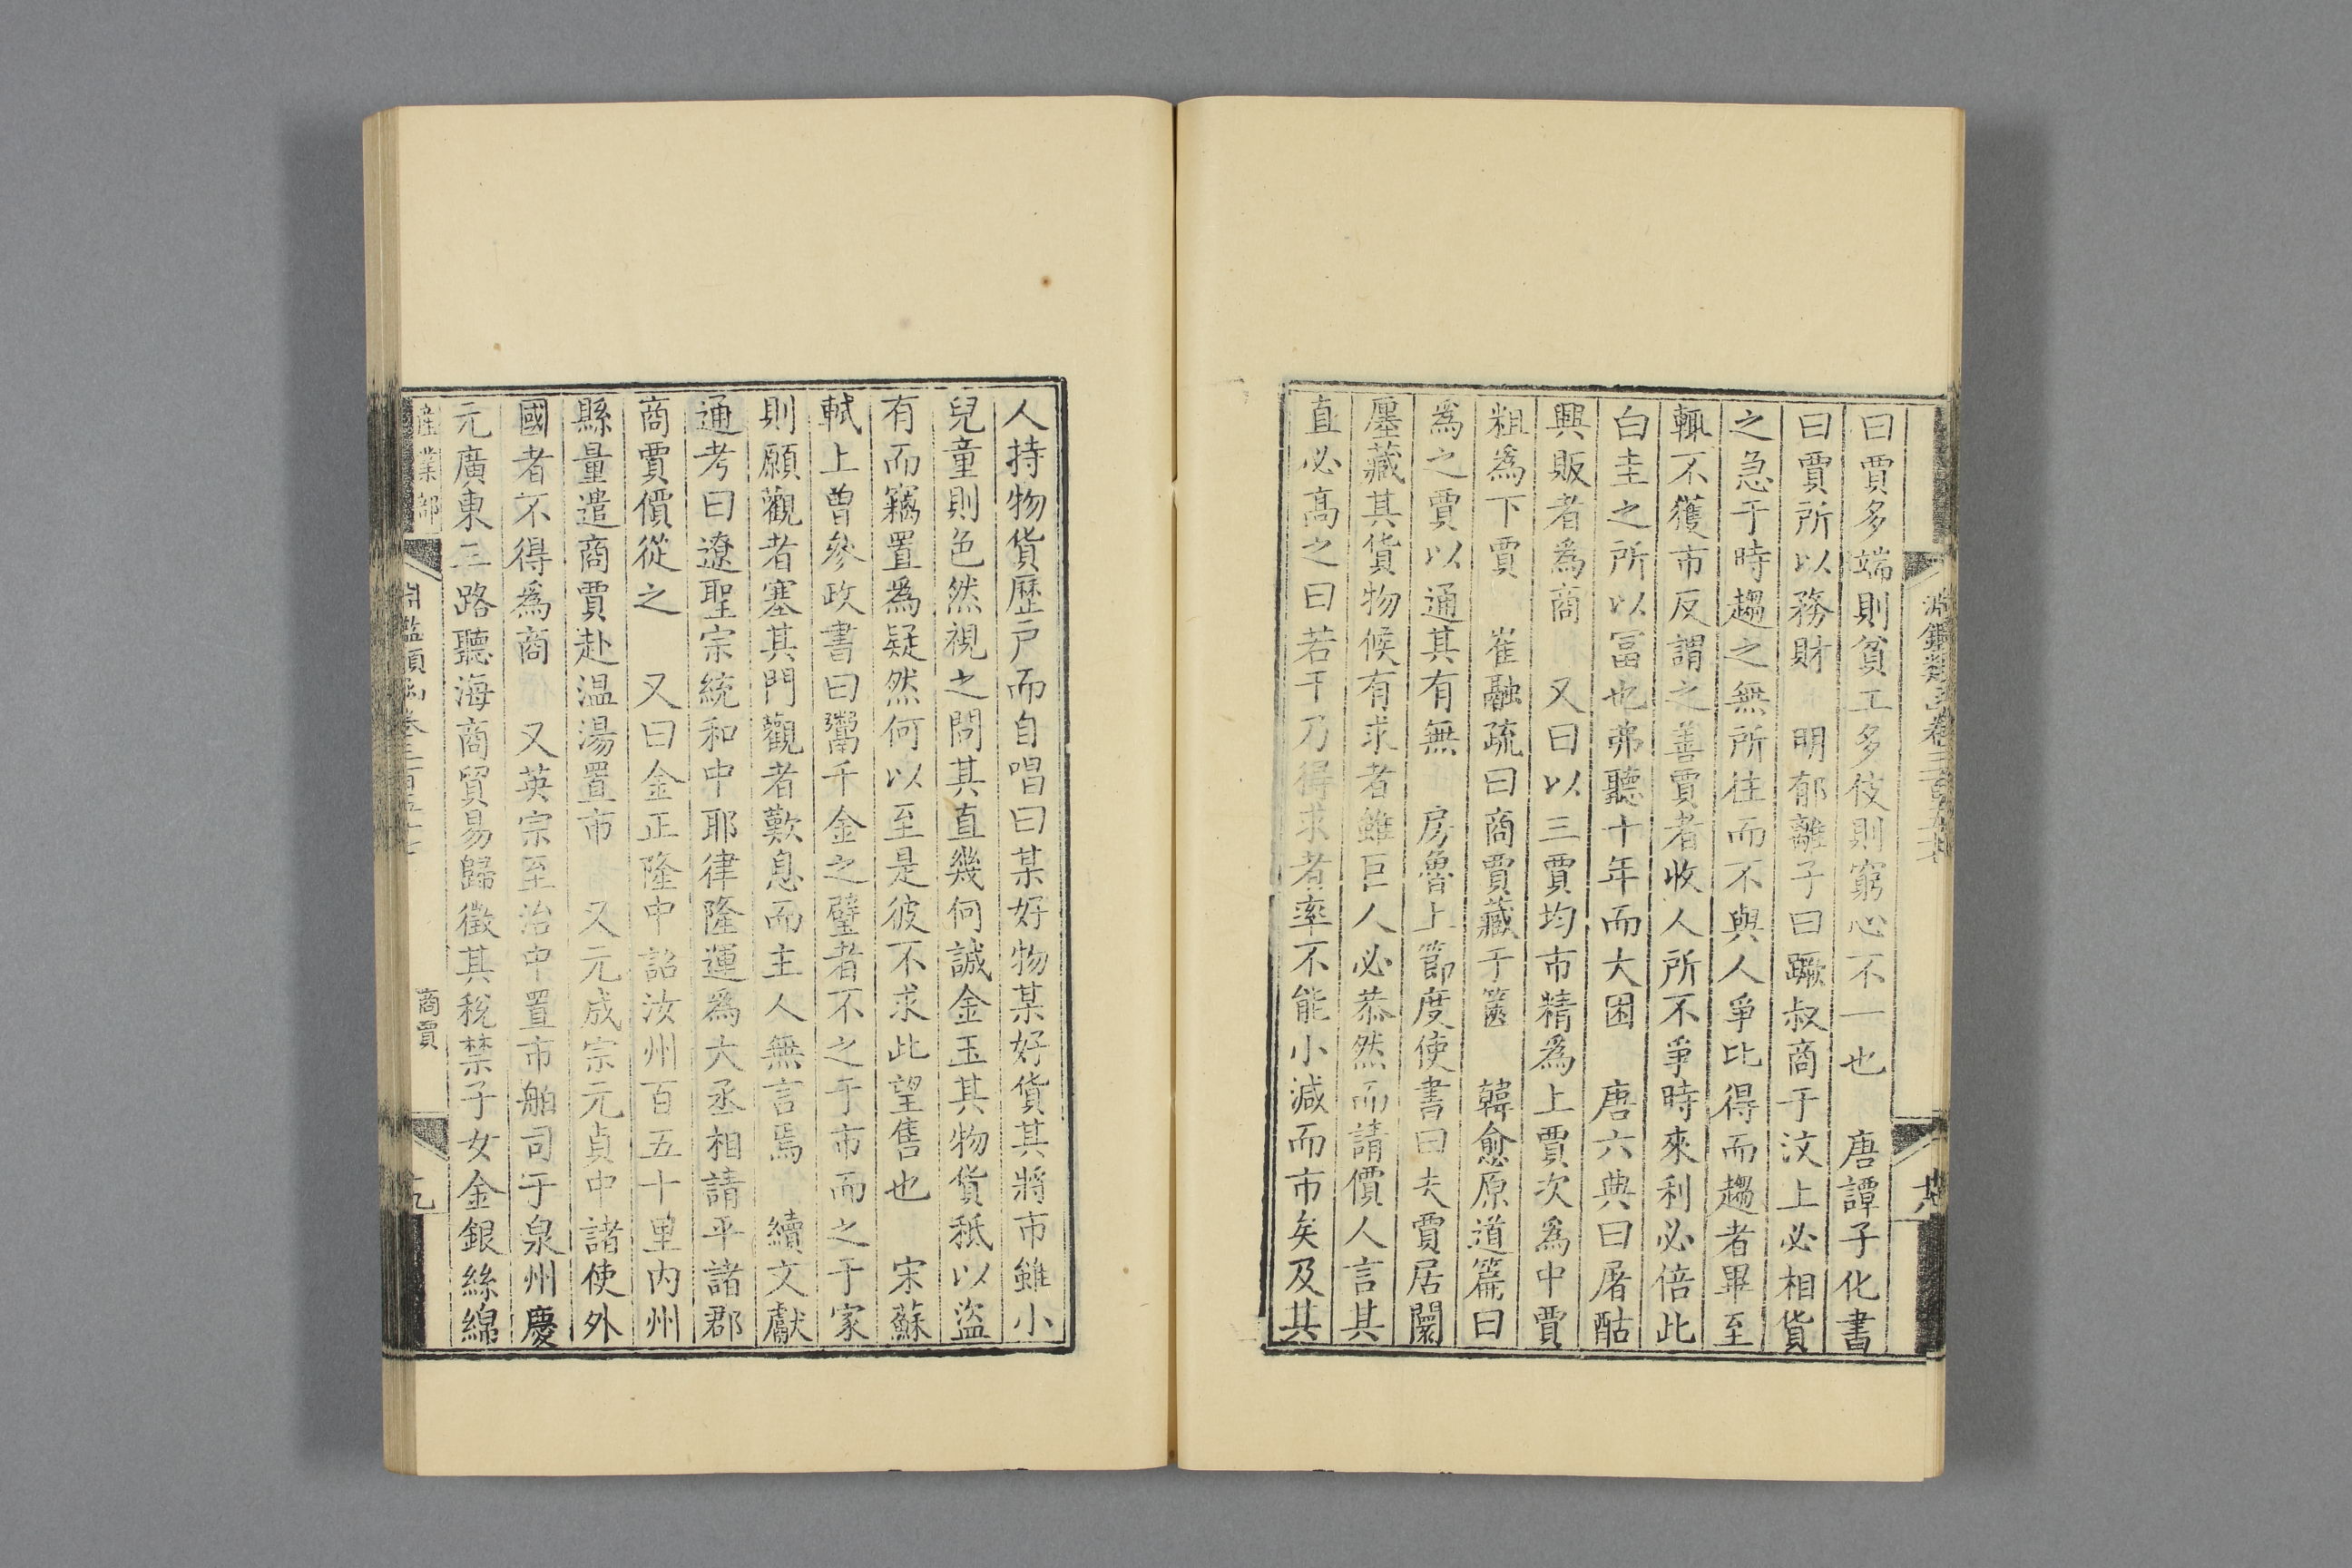 曰賈多端則貧工多伎則窮心不一也　唐譚子化書
曰賈所以務財　明郁離子曰蹶叔商于汶上必相貨
之急于時趨之無所往而不與人爭比得而趨者畢至
輒不獲市反謂之善賈者收人所不爭時來利必倍此
白圭之所以富也弗聽十年而大困　唐六典曰屠酤
興販者為商　又曰以三賈均市精為上賈次為中賈
粗為下賈　崔融疏曰商賈藏于篋　韓愈原道篇曰
為之賈以通其有無　房魯上節度使書曰夫賈居闤
㕓藏其貨物候有求者雖巨人必恭然而請價人言其
直必高之曰若干乃得求者率不能小減而市矣及其
人持物貨歷戶而自唱曰某好物某好貨其將市雖小
兒童則色然視之問其直幾何誠金玉其物貨秪以盜
有而竊置爲疑然何以至是彼不求此望售也　宋蘇
軾上曾參政書曰鬻千金之璧者不之于市而之于家
則願觀者塞其門觀者歎息而主人無言焉　續文獻
通考曰遼聖宗統和中耶律隆運爲大丞相請平諸郡
商賈價從之　又曰金正隆中詔汝州百五十里內州
縣量遣商賈赴温湯置市　又元成宗元貞中諸使外
國者不得爲商　又英宗至治中置市舶司于泉州慶
元廣東三路聽海商貿易歸徵其稅禁子女金銀絲綿
産業部
商賈